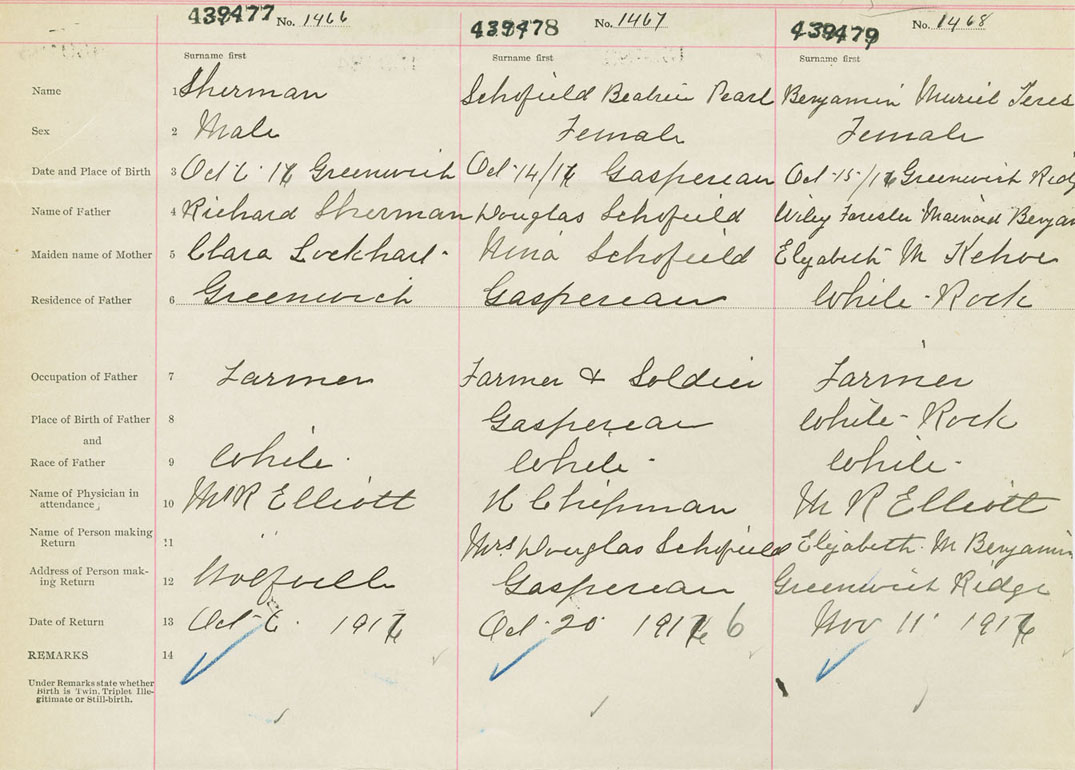 439477 No. 1466 439478 No. 1467 439479 No. 1468
Surname first Surname first Surname first
Name 1 Sherman Schofield Beatrice Pearl Benjamin Muriel Teres
Sex 2 Male Female Female
Date and Place of Birth 3 Oct 6 16 Greenwich Oct 14/16 Gaspereau Oct 15/16 Greenwich Ridg
Name of Father 4 Richard Sherman Douglas Schofield Wiley Forester Mainard Benjam
Maiden name of Mother 5 Clara Lockhart Nina Schofield Elizabeth M Kehoe
Residence of Father 6 Greenwich Gaspereau White-Rock
Occupation of Father 7 Farmer Farmer & Soldier Farmer
Place of Birth of Father 8 Gaspereau White-Rock
and
Race of Father 9 White White White
Name of Physician in
attendance, 10 M R Elliott H Chipman M R Elliott
Name of Person making
Return 11 " Mrs Douglas Schofield Elizabeth M Benjamin
Address of Person mak-
ing Return 12 Wolfville Gaspereau Greenwich Ridge
Date of Return 13 Oct 6 1916 Oct 20 1916 6 Nov 11 1916
REMARKS 14
Under Remarks state whether
Birth is Twin, Triplet Ille-
gitimate or Still-birth.